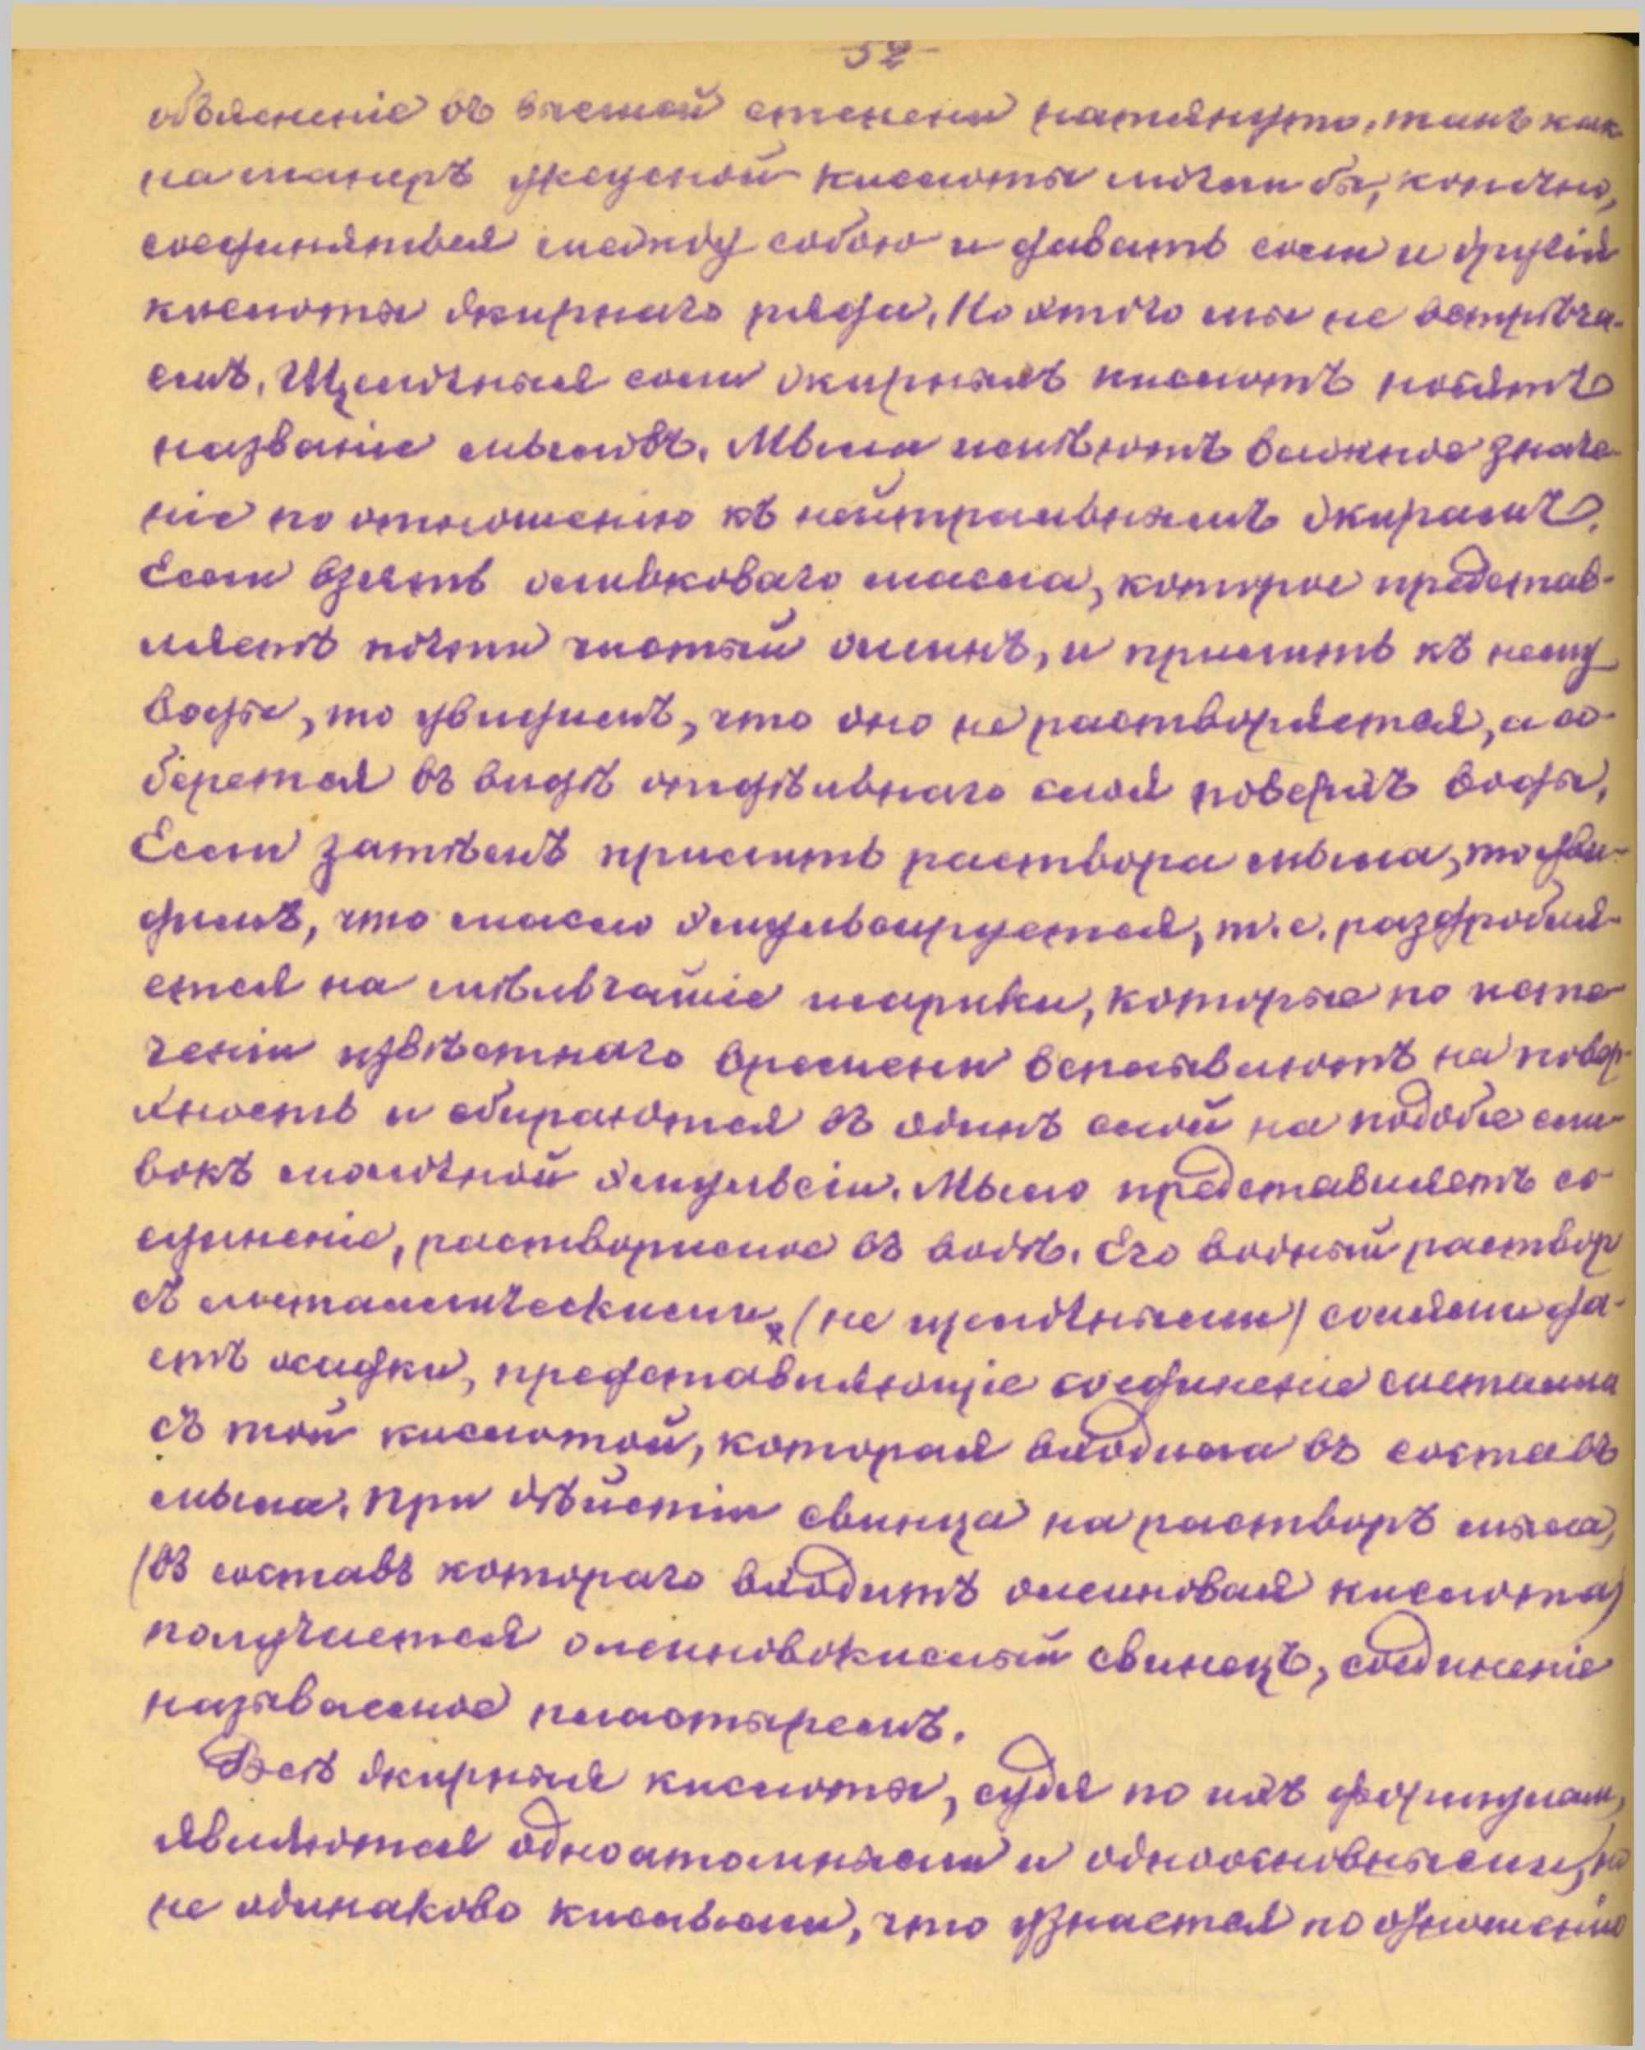 52
объясненіе въ высшей степени натянуто, такъ как
на манеръ уксусной кислоты могли бы, конечно,
соединяться между собою и давать соли и другія
кислоты жирнаго ряда. Но этого мы не встрѣча-
емъ. Щелочныя соли жирныхъ кислотъ носятъ
названіе мылъ. Мыла имѣютъ важное значе-
ніе по отношенію къ нейтральнымъ жирамъ.
Если взять оливковаго масла, которое представ-
ляетъ почти чистый олеинъ, и прилить къ нему
воды, то увидимъ, что оно не растворяется, а со-
берется въ видѣ отдѣльнаго слоя поверхъ воды.
Если затѣмъ прилить раствора мыла, то уви-
димъ, что масло эмульсируется, т. е. раздробля-
ется на мѣльчайшіе шарики, которые по исте-
ченіи извѣстнаго времени всплываютъ на повер-
хность и сбираются въ одинъ слой на подобіе сли-
вокъ молочной эмульсіи. Мыло представляетъ со-
единеніе, растворимое въ водѣ. Его водный раствор
съ металлическими (не щелочными) солями да-
етъ осадки, представляющіе соединеніе металла
съ той кислотой, которая входила въ составъ
мыла. При дѣйстіи свинца на растворъ мыла,
(въ составъ котораго входитъ олеиновая кислота)
получается олеиновокислый свинецъ, соединеніе
называемое пластыремъ.
Всѣ жирныя кислоты, судя по ихъ формулам,
являются одноатомными и одноосновными, но
не одинаково кислыми, что узнается по отношенію